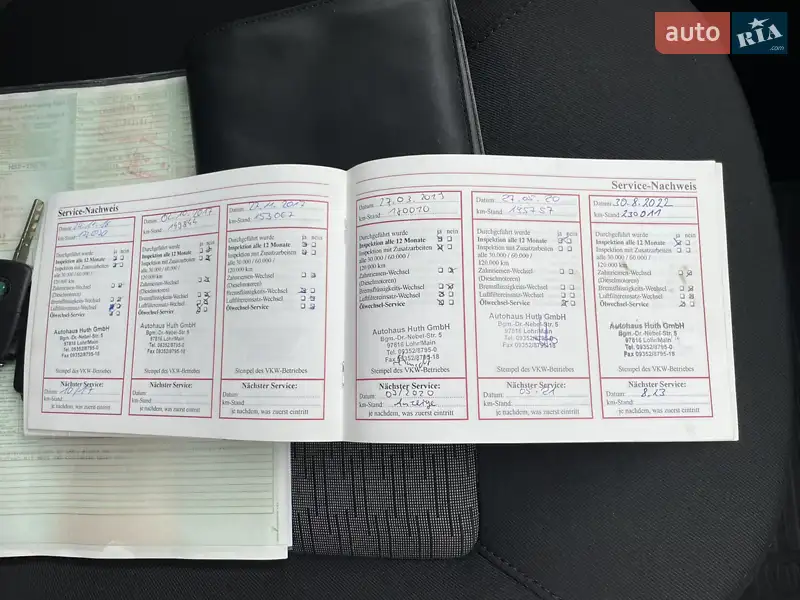 auto RIA.com
Service-Nachweis
Datum:
km-Stand:
Durchgeführt wurde ja nein
Inspektion alle 12 Monate
Inspektion mit Zusatzarbeiten
alle 30.000 / 60.000 /
120.000 km
Zahnriemen-Wechsel
(Dieselmotoren)
Bremsflüssigkeits-Wechsel
Luftfiltereinsatz-Wechsel
Ölwechsel-Service
Autohaus Huth GmbH
Bgm.-Dr.-Nebel-Str. 5
97816 Lohr/Main
Tel. 09352/8795-0
Fax 09352/8795-18
Stempel des VKW-Betriebes
Nächster Service:
Datum:
km-Stand:
je nachdem, was zuerst eintritt
Datum:
km-Stand:
Durchgeführt wurde ja nein
Inspektion alle 12 Monate
Inspektion mit Zusatzarbeiten
alle 30.000 / 60.000 /
120.000 km
Zahnriemen-Wechsel
(Dieselmotoren)
Bremsflüssigkeits-Wechsel
Luftfiltereinsatz-Wechsel
Ölwechsel-Service
Autohaus Huth GmbH
Bgm.-Dr.-Nebel-Str. 5
97816 Lohr/Main
Tel. 09352/8795-0
Fax 09352/8795-18
Stempel des VKW-Betriebes
Nächster Service:
Datum:
km-Stand:
je nachdem, was zuerst eintritt
Datum: 11.2017
km-Stand: 153067
Durchgeführt wurde ja nein
Inspektion alle 12 Monate
Inspektion mit Zusatzarbeiten
alle 30.000 / 60.000 /
120.000 km
Zahnriemen-Wechsel
(Dieselmotoren)
Bremsflüssigkeits-Wechsel
Luftfiltereinsatz-Wechsel
Ölwechsel-Service
Autohaus Huth GmbH
Bgm.-Dr.-Nebel-Str. 5
97816 Lohr/Main
Tel. 09352/8795-0
Fax 09352/8795-18
Stempel des VKW-Betriebes
Nächster Service:
Datum:
km-Stand:
je nachdem, was zuerst eintritt
Service-Nachweis
Datum: 27.03.2019
km-Stand: 180010
Durchgeführt wurde ja nein
Inspektion alle 12 Monate
Inspektion mit Zusatzarbeiten
alle 30.000 / 60.000 /
120.000 km
Zahnriemen-Wechsel
(Dieselmotoren)
Bremsflüssigkeits-Wechsel
Luftfiltereinsatz-Wechsel
Ölwechsel-Service
Autohaus Huth GmbH
Bgm.-Dr.-Nebel-Str. 5
97816 Lohr/Main
Tel. 09352/8795-0
Fax 09352/8795-18
Stempel des VKW-Betriebes
Nächster Service:
Datum: 03/2020
km-Stand: Anzeige
je nachdem, was zuerst eintritt
Datum: 27.05.20
km-Stand: 195757
Durchgeführt wurde ja nein
Inspektion alle 12 Monate
Inspektion mit Zusatzarbeiten
alle 30.000 / 60.000 /
120.000 km
Zahnriemen-Wechsel
(Dieselmotoren)
Bremsflüssigkeits-Wechsel
Luftfiltereinsatz-Wechsel
Ölwechsel-Service
Autohaus Huth GmbH
Bgm.-Dr.-Nebel-Str. 5
97816 Lohr/Main
Tel. 09352/8795-0
Fax 09352/8795-18
Stempel des VKW-Betriebes
Nächster Service:
Datum: 05.21
km-Stand:
je nachdem, was zuerst eintritt
Datum: 30.8.2022
km-Stand: 230011
Durchgeführt wurde ja nein
Inspektion alle 12 Monate
Inspektion mit Zusatzarbeiten
alle 30.000 / 60.000 /
120.000 km
Zahnriemen-Wechsel
(Dieselmotoren)
Bremsflüssigkeits-Wechsel
Luftfiltereinsatz-Wechsel
Ölwechsel-Service
Autohaus Huth GmbH
Bgm.-Dr.-Nebel-Str. 5
97816 Lohr/Main
Tel. 09352/8795-0
Fax 09352/8795-18
Stempel des VKW-Betriebes
Nächster Service:
Datum: 8.23
km-Stand:
je nachdem, was zuerst eintritt